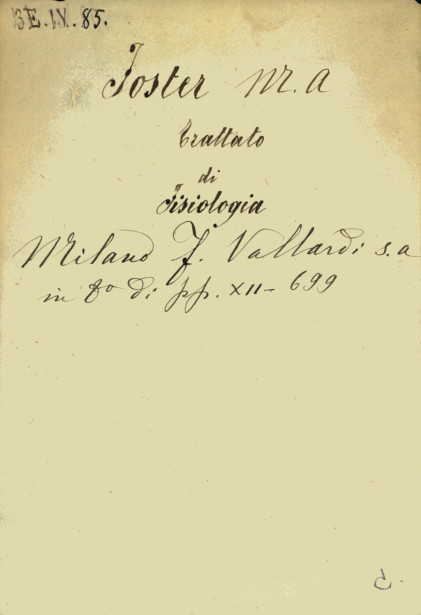 3E.IV.85.
Foster M. A
Trattato
di
Fisiologia
Milano F. Vallardi s.a
in 8º di pp. XII-699